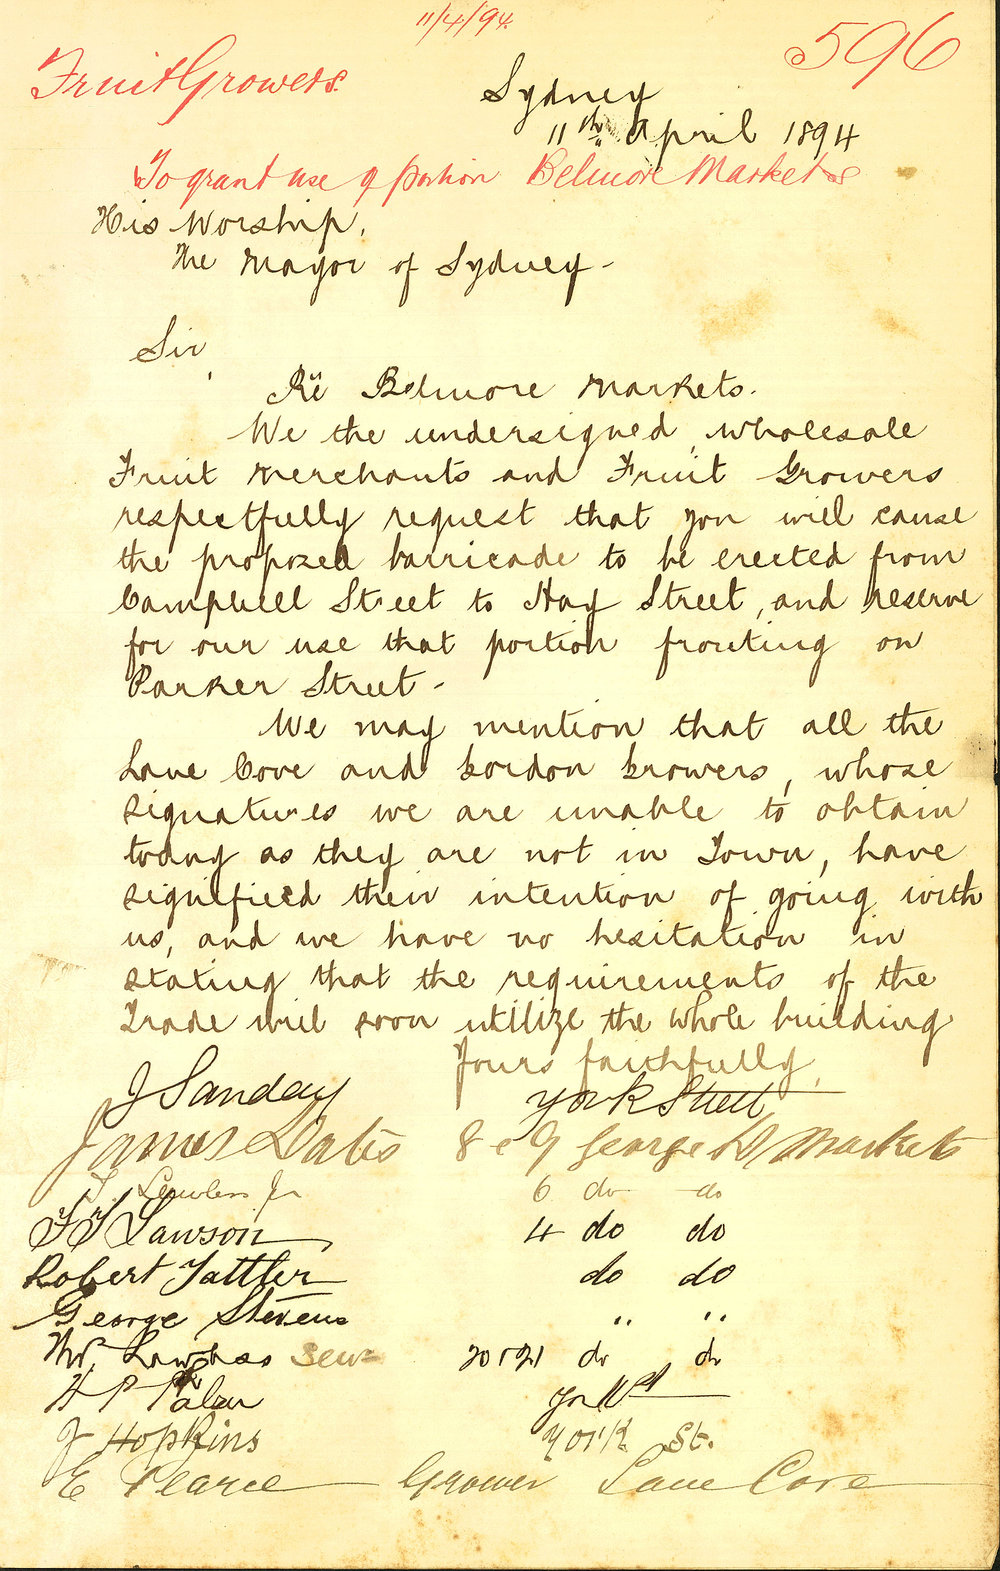 11/4/94.
596
Fruit Growers.
Sydney
11th April 1894
To grant use of portion Belmore Markets
His Worship.
The Mayor of Sydney -
Sir,
Re Belmore Markets.
We the undersigned, wholesale
Fruit Merchants and Fruit Growers
respectfully request that you will cause
the propozed barricade to be erected from
Campbell Street to Hay Street, and reserve
for our use that portion fronting on
Parker Street -
We may mention that all the
Lane Cove and Gordon Growers, whose
signatures we are unable to obtain
today as they are not in Town, have
signified their intention of going with
us, and we have no hesitation in
stating that the requirements of the
Trade will soon utilize the whole building
Yours faithfully,
J Sanday York Street
James 8 & 9 George St Markets
6 do do
F J Lawson 4 do do
Robert Tattler do do
George Stevens " "
Wm Sen 20 & 21 do do
H P York St
J Hopkins York St.
E Pearce Grower Lane Cove